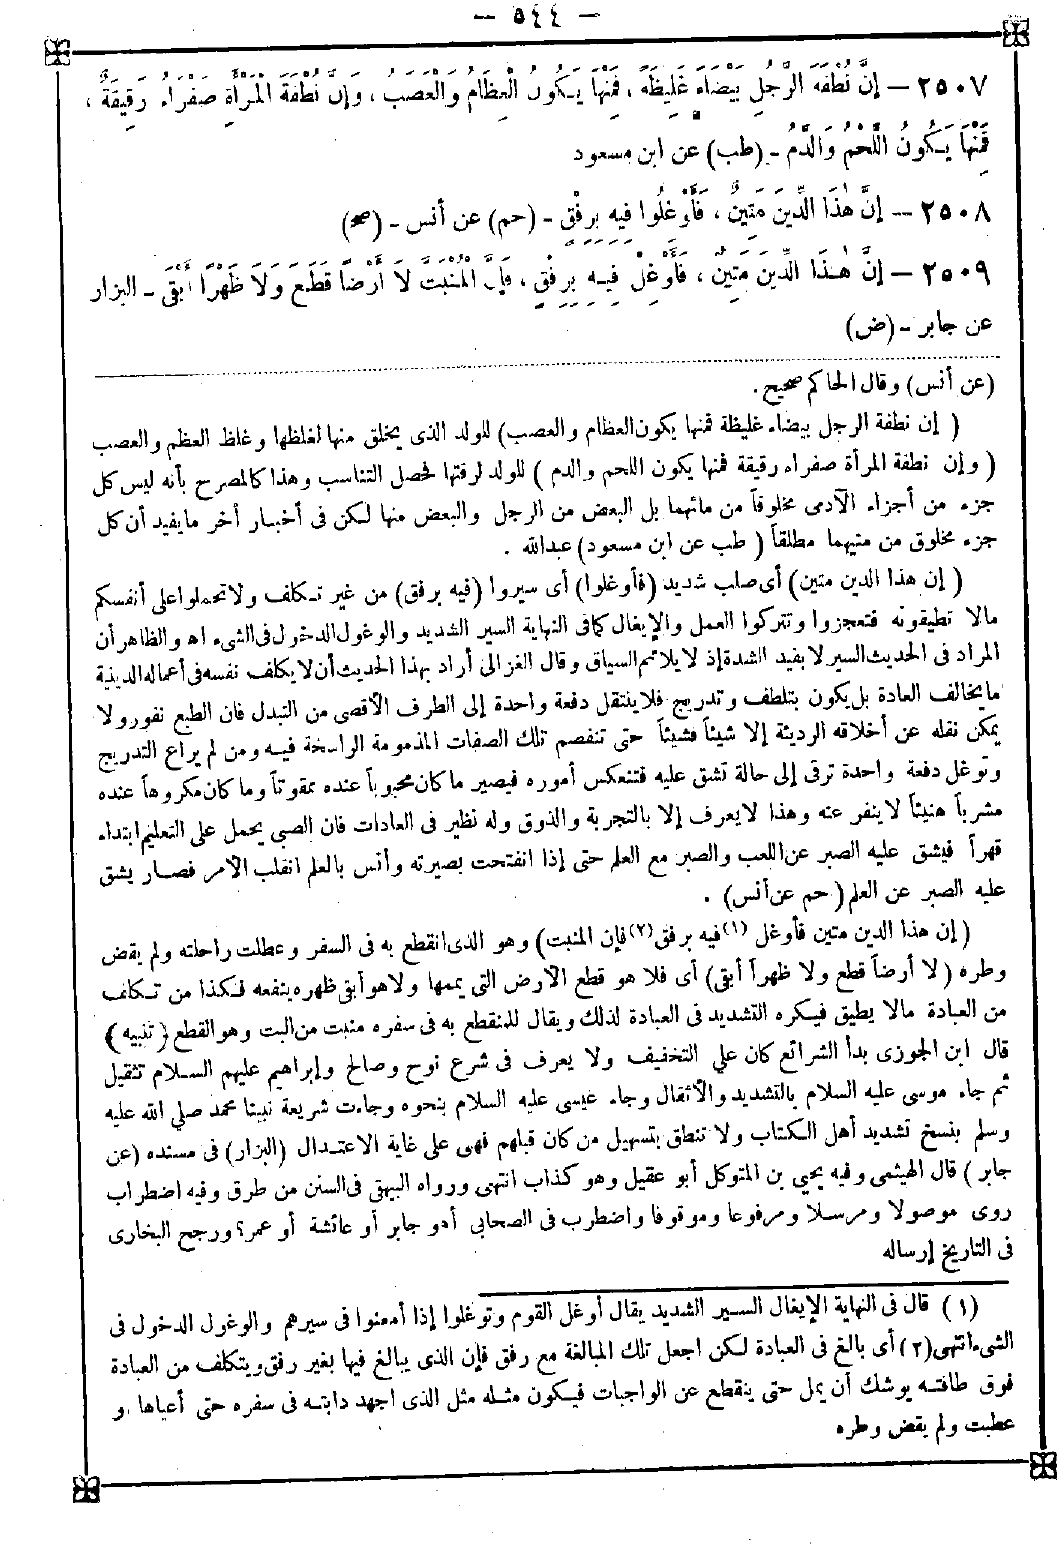 — ٥٤٤ —
٢٥٠٧ — إِنَّ نُطْفَةَ الرَّجُلِ بَيْضَاءُ غَلِيظَةٌ ، فَمِنْهَا يَكُونُ الْعِظَامُ وَالْعَصَبُ ، وَإِنَّ نُطْفَةَ الْمَرْأَةِ صَفْرَاءُ رَقِيقَةٌ ،
فَمِنْهَا يَكُونُ اللَّحْمُ وَالدَّمُ - (طب) عن ابن مسعود
٢٥٠٨ — إِنَّ هٰذَا الدِّينَ مَتِينٌ ، فَأَوْغِلُوا فِيهِ بِرِفْقٍ - (حم) عن أنس - (صح)
٢٥٠٩ — إِنَّ هٰذَا الدِّينَ مَتِينٌ ، فَأَوْغِلْ فِيهِ بِرِفْقٍ ، فَإِنَّ الْمُنْبَتَّ لَا أَرْضًا قَطَعَ وَلَا ظَهْرًا أَبْقَى - البزار
عن جابر - (ض)
(عن أنس) وقال الحاكم صحيح .
( إن نطفة الرجل بيضاء غليظة فمنها يكون العظام والعصب) للولد الذى يخلق منها لغلظها وغلظ العظم والعصب
( وإن نطفة المرأة صفراء رقيقة فمنها يكون اللحم والدم ) للولد لرقتها فحصل التناسب وهذا كالمصرح بأنه ليس كل
جزء من أجزاء الآدمى مخلوقاً من مائهما بل البعض من الرجل والبعض منها لكن فى أخبار أخر ما يفيد أن كل
جزء مخلوق من منيهما مطلقاً ( طب عن ابن مسعود) عبدالله .
( إن هذا الدين متين) أى صلب شديد (فأوغلوا) أى سيروا (فيه برفق) من غير تكلف ولا تحملوا على أنفسكم
مالا تطيقونه فتعجزوا وتتركوا العمل والإيغال كما فى النهاية السير الشديد والوغول الدخول فى الشىء اه والظاهر أن
المراد فى الحديث السير لا يفيد الشدة إذ لا يلائم السياق وقال الغزالى أراد بهذا الحديث أن لا يكلف نفسه فى أعماله الدينية
ما يخالف العادة بل يكون بتلطف وتدريج فلا ينتقل دفعة واحدة إلى الطرف الأقصى من التبدل فان الطبع نفور ولا
يمكن نقله عن أخلاقه الرديئة إلا شيئاً فشيئاً حتى تنفصم تلك الصفات المذمومة الراسخة فيه ومن لم يراع التدريج
وتوغل دفعة واحدة ترقى إلى حالة تشق عليه فتنعكس أموره فيصير ما كان محبوباً عنده ممقوتاً وما كان مكروهاً عنده
مشرباً هنيئاً لا ينفر عنه وهذا لايعرف إلا بالتجربة والذوق وله نظير فى العادات فان الصبى يحمل على التعليم ابتداء
قهراً فيشق عليه الصبر عن اللعب والصبر مع العلم حتى إذا انفتحت بصيرته وأنس بالعلم انقلب الأمر فصار يشق
عليه الصبر عن العلم ( حم عن أنس) .
( إن هذا الدين متين فأوغل (١) فيه برفق (٢) فإن المنبت) وهو الذى انقطع به فى السفر وعطلت راحلته ولم يقض
وطره ( لا أرضاً قطع ولا ظهراً أبقى) أى فلا هو قطع الأرض التى يممها ولا هو أبقى ظهره ينفعه فكذا من تكلف
من العبادة مالا يطيق فيكره التشديد فى العبادة لذلك ويقال للمنقطع به فى سفره منبت من البت وهو القطع (تنبيه)
قال ابن الجوزى بدأ الشرائع كان على التخفيف ولا يعرف فى شرع نوح وصالح وإبراهيم عليهم السلام تثقيل
ثم جاء موسى عليه السلام بالتشديد والأثقال وجاء عيسى عليه السلام بنحوه وجاءت شريعة نبينا محمد صلى الله عليه
وسلم بنسخ تشديد أهل الكتاب ولا تنطق بتسهيل من كان قبلهم فهى على غاية الاعتدال (البزار) فى مسنده (عن
جابر ) قال الهيثمى وفيه يحيى بن المتوكل أبو عقيل وهو كذاب انتهى ورواه البيهقى فى السنن من طرق وفيه اضطراب
روى موصولا ومرسلا ومرفوعا وموقوفا واضطرب فى الصحابى أهو جابر أو عائشة أو عمر؟ ورجح البخارى
فى التاريخ إرساله
(١) قال فى النهاية الإيغال السير الشديد يقال أوغل القوم وتوغلوا إذا أمعنوا فى سيرهم والوغول الدخول فى
الشىء انتهى (٢) أى بالغ فى العبادة لكن اجعل تلك المبالغة مع رفق فإن الذى يبالغ فيها بغير رفق ويتكلف من العبادة
فوق طاقته يوشك أن يمل حتى ينقطع عن الواجبات فيكون مثله مثل الذى اجهد دابته فى سفره حتى أعياها و
عطبت ولم يقض وطره